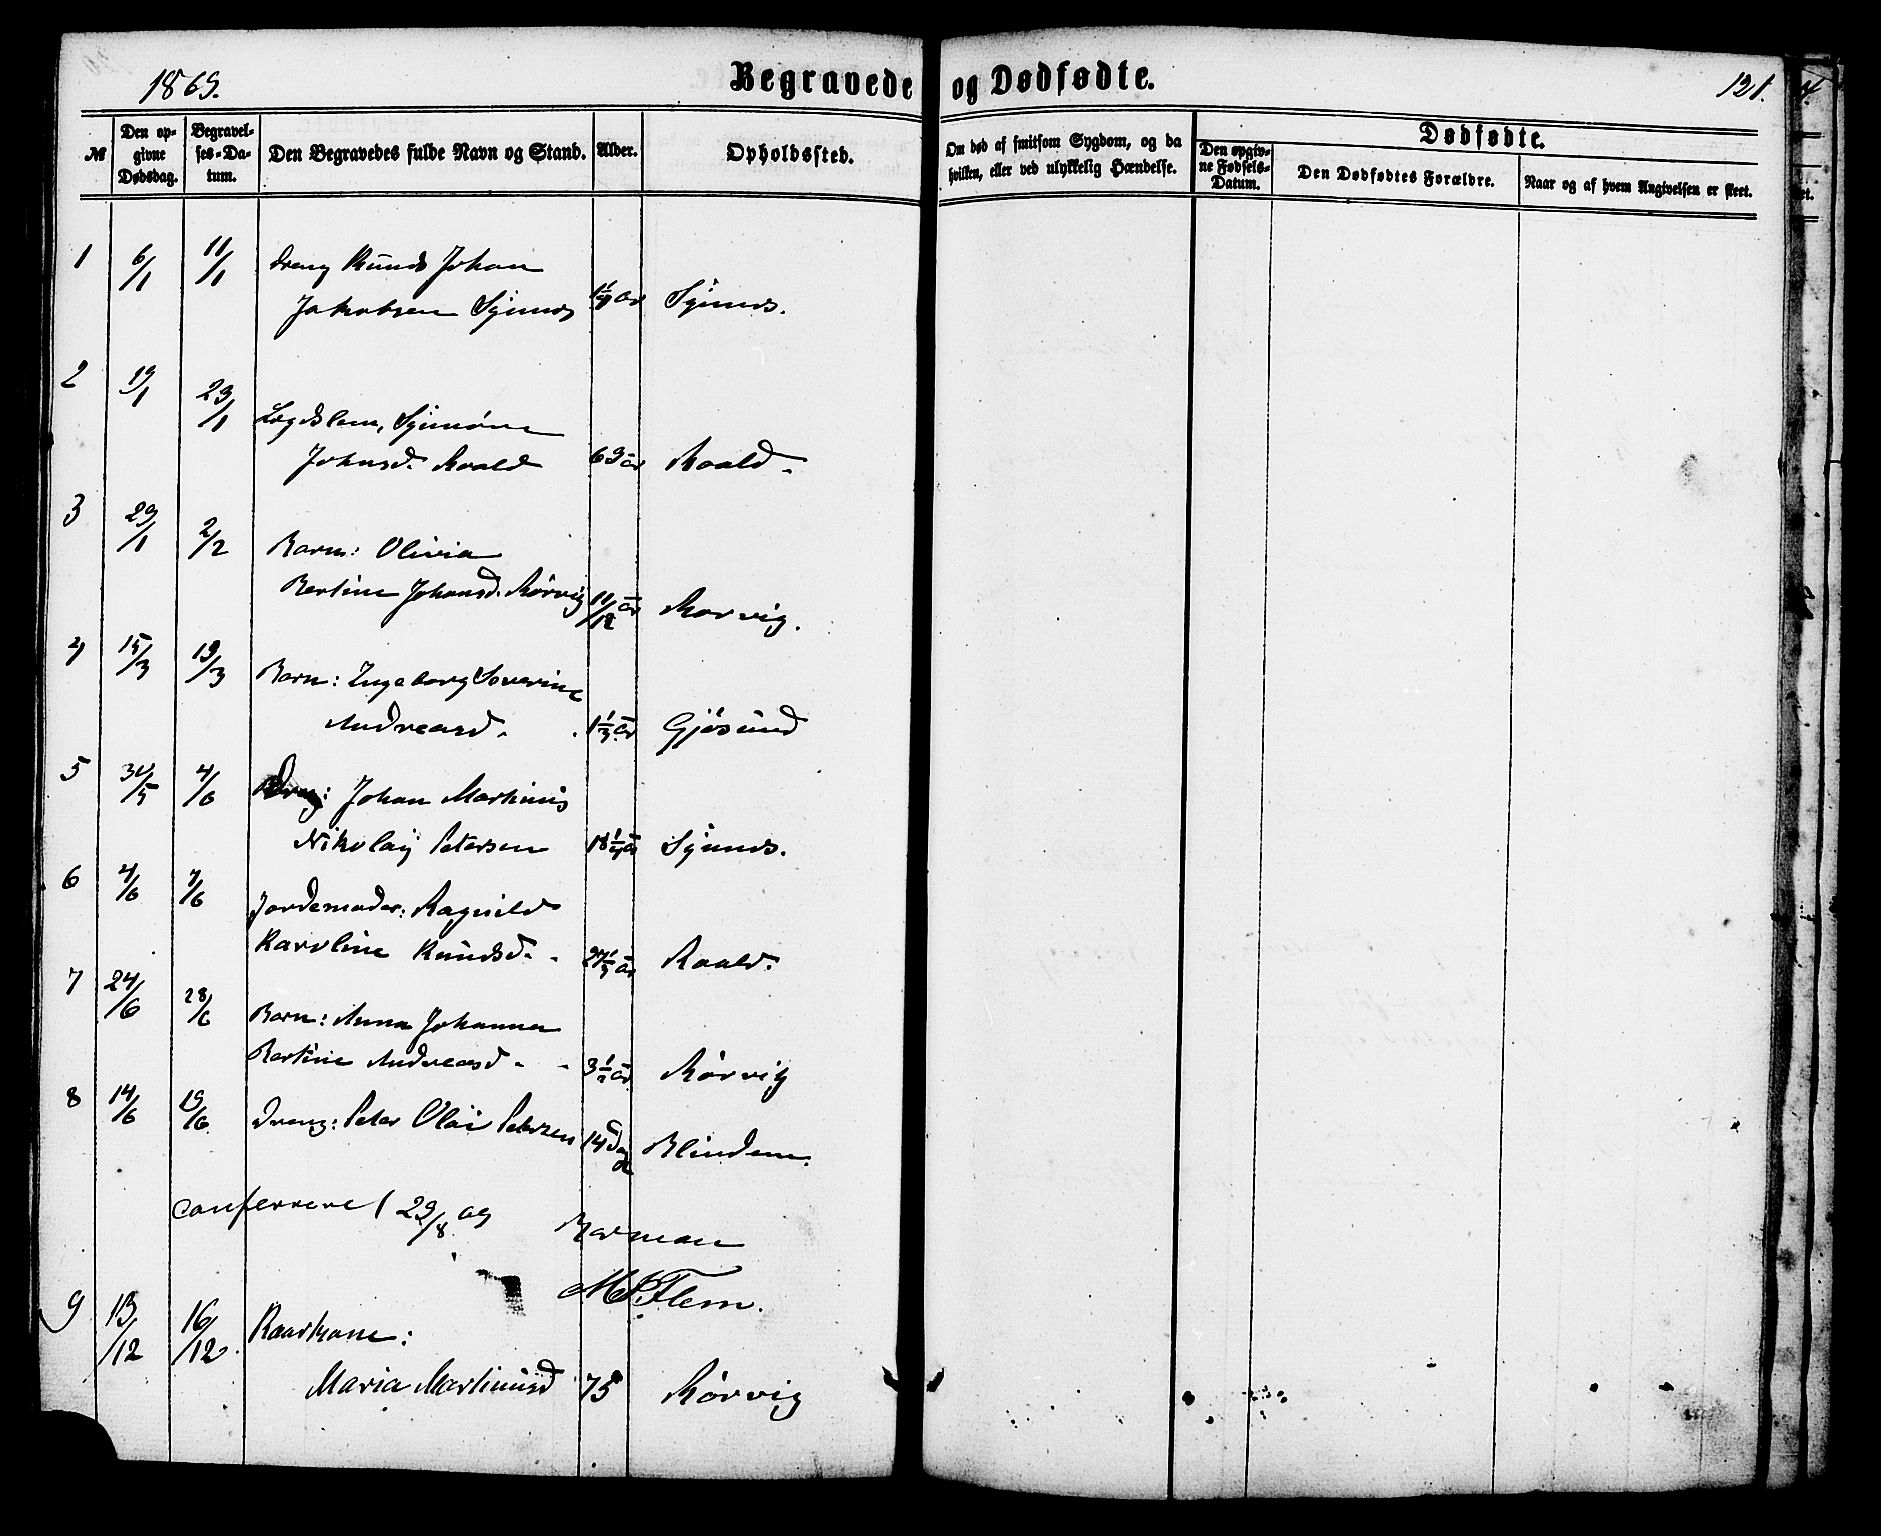 1869.
Begravede og Dødfødte.
121.
№
Den op-
givne
Dødsdag.
Begravel-
ses-Da-
tum.
Den Begravedes fulde Navn og Stand.
Alder.
Opholdssted.
Om død af smitsom Sygdom, og da
hvilken, eller ved ulykkelig Hændelse.
Dødfødte.
Den opgiv-
ne Fødsels-
Datum.
Den Dødfødtes Forældre.
Naar og af hvem Angivelsen er skeet.
1 6/1 11/1 Dreng Knuds Johan
Jakobsen Synnes 1 1/4 år Synnes.
2 19/1 23/1 Lægdslem, Synnøve
Johnsd. Roald 69 år Roald.
3 29/1 2/2 Barn: Olivia
Bertine Johansd. Rørvig 11/12 år Rørvig.
4 15/3 19/3 Barn: Ingeborg Severine
Andreasd. 1 1/3 år Gjøsund
5 31/5 4/6 Dreng: Johan Martinus
Nikolaÿ Petersen 18 1/4 år Synnes.
6 4/6 7/6 Jordemoder: Ragnild
Karoline Knudsd. år Roald.
7 24/6 28/6 Barn: Anna Johanna
Bertine Andreasd. 3 1/2 år Rørvig
8 14/6 19/6 Dreng: Peter Olai Petersen 14 Dage Blindem.
Conferrere 29/8 69 Borman
M P. Flem.
9 13/12 16/12. Kaarkone:
Maria Martinusd 75 Rørvig